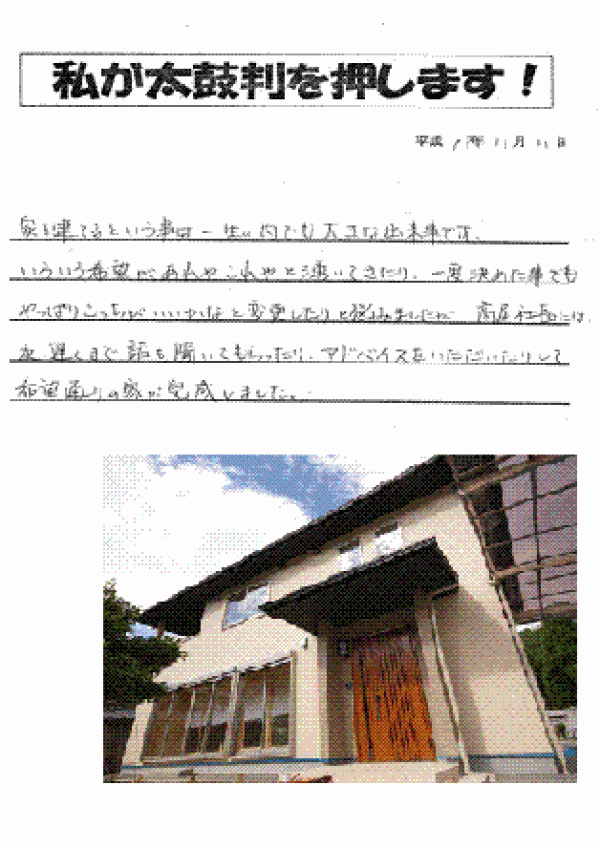 私が太鼓判を押します！
平成17年11月 日
家を建てるという事は一生の内でも大きな出来事です。
いろいろ希望があれやこれやと湧いてきたり、一度決めた事でも
やっぱりこっちがいいかなと変更したりと悩みましたが 社長には、
夜遅くまで話を聞いてもらったり、アドバイスをいただいたりして
希望通りの家が完成しました。